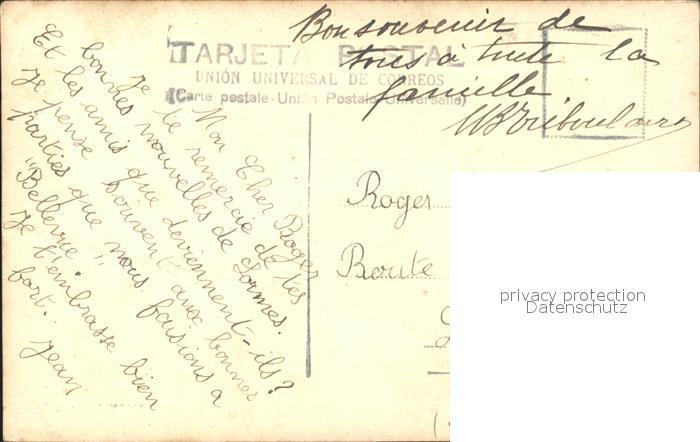 Bon souvenir de
tous à toute la
famille
TARJETA POSTAL
UNIÓN UNIVERSAL DE CORREOS
(Carte postale-Unión Postale Universelle)
Mon Cher Roger
Je te remercie de tes
bonnes nouvelles de Lormes.
Et les amis que deviennent-ils?
Je pense souvent aux bonnes
parties que nous faisions a
"Bellevue"
Je t'embrasse bien
fort.
Jean
Roger
Route
privacy protection
Datenschutz